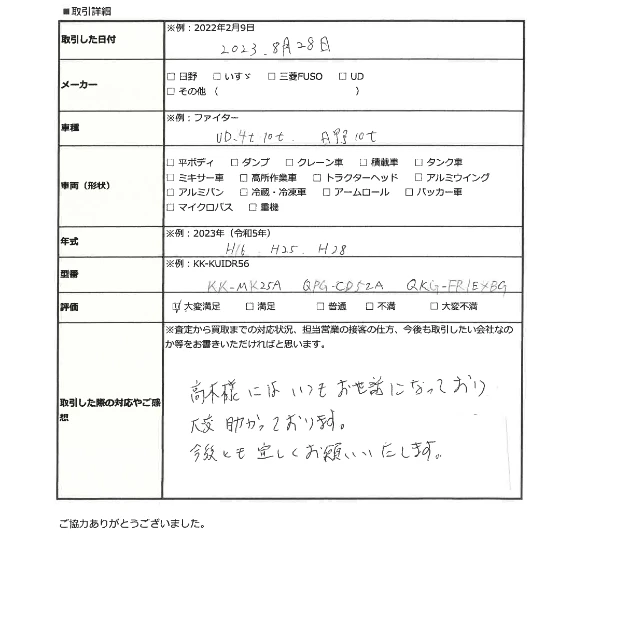 ■取引詳細
取引した日付
※例：2022年2月9日
2023.8月28日
メーカー
□ 日野 □ いすゞ □ 三菱FUSO □ UD
□ その他 （ ）
車種
※例：ファイター
UD.4t 10t. 日野 10t
車両（形状）
□ 平ボディ □ ダンプ □ クレーン車 □ 積載車 □ タンク車
□ ミキサー車 □ 高所作業車 □ トラクターヘッド □ アルミウイング
□ アルミバン □ 冷蔵・冷凍車 □ アームロール □ パッカー車
□ マイクロバス □ 重機
年式
※例：2023年（令和5年）
H16. H25. H28
型番
※例：KK-KUIDR56
KK-MK25A QPG-CD52A QKG-FR1EXBG
評価
☑ 大変満足 □ 満足 □ 普通 □ 不満 □ 大変不満
取引した際の対応やご感想
※査定から買取までの対応状況、担当営業の接客の仕方、今後も取引したい会社なの
か等をお書きいただければと思います。
高木様にはいつもお世話になっており
大変助かっております。
今後とも宜しくお願いいたします。
ご協力ありがとうございました。